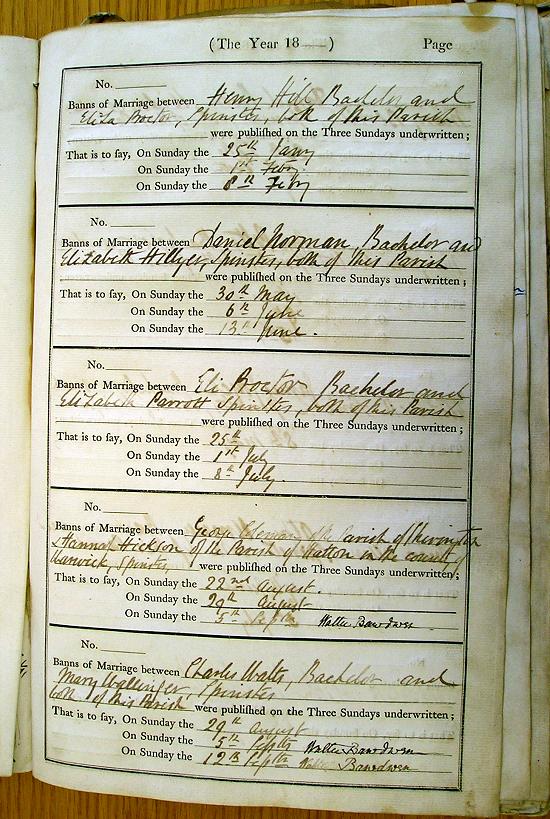 (The Year 18 ) Page
No.
Banns of Marriage between Henry Hill Bachelor and
Eliza Procter, Spinster, both of this Parish
were published on the Three Sundays underwritten;
That is to say, On Sunday the 25th Jany
On Sunday the 1st Feby
On Sunday the 8th Feby
No.
Banns of Marriage between Daniel Norman, Bachelor and
Elizabeth Hillyer, Spinster, both of this Parish
were published on the Three Sundays underwritten;
That is to say, On Sunday the 30th May
On Sunday the 6th June
On Sunday the 13th June.
No.
Banns of Marriage between Eli Procter Bachelor and
Elizabeth Parrott Spinster, both of this Parish
were published on the Three Sundays underwritten;
That is to say, On Sunday the 25th
On Sunday the 1st July
On Sunday the 8th July.
No.
Banns of Marriage between George of the Parish of
& Hannah Hickson of the Parish of Hatton in the county of
Warwick, Spinster, were published on the Three Sundays underwritten;
That is to say, On Sunday the 22nd August.
On Sunday the 29th August
On Sunday the 5th Septr Walter Bawdwen
No.
Banns of Marriage between Charles Watts, Bachelor and
Mary Wallinger, Spinster
both of this Parish were published on the Three Sundays underwritten;
That is to say, On Sunday the 29th August
On Sunday the 5th Septr Walter Bawdwen
On Sunday the 12th Septr Walter Bawdwen